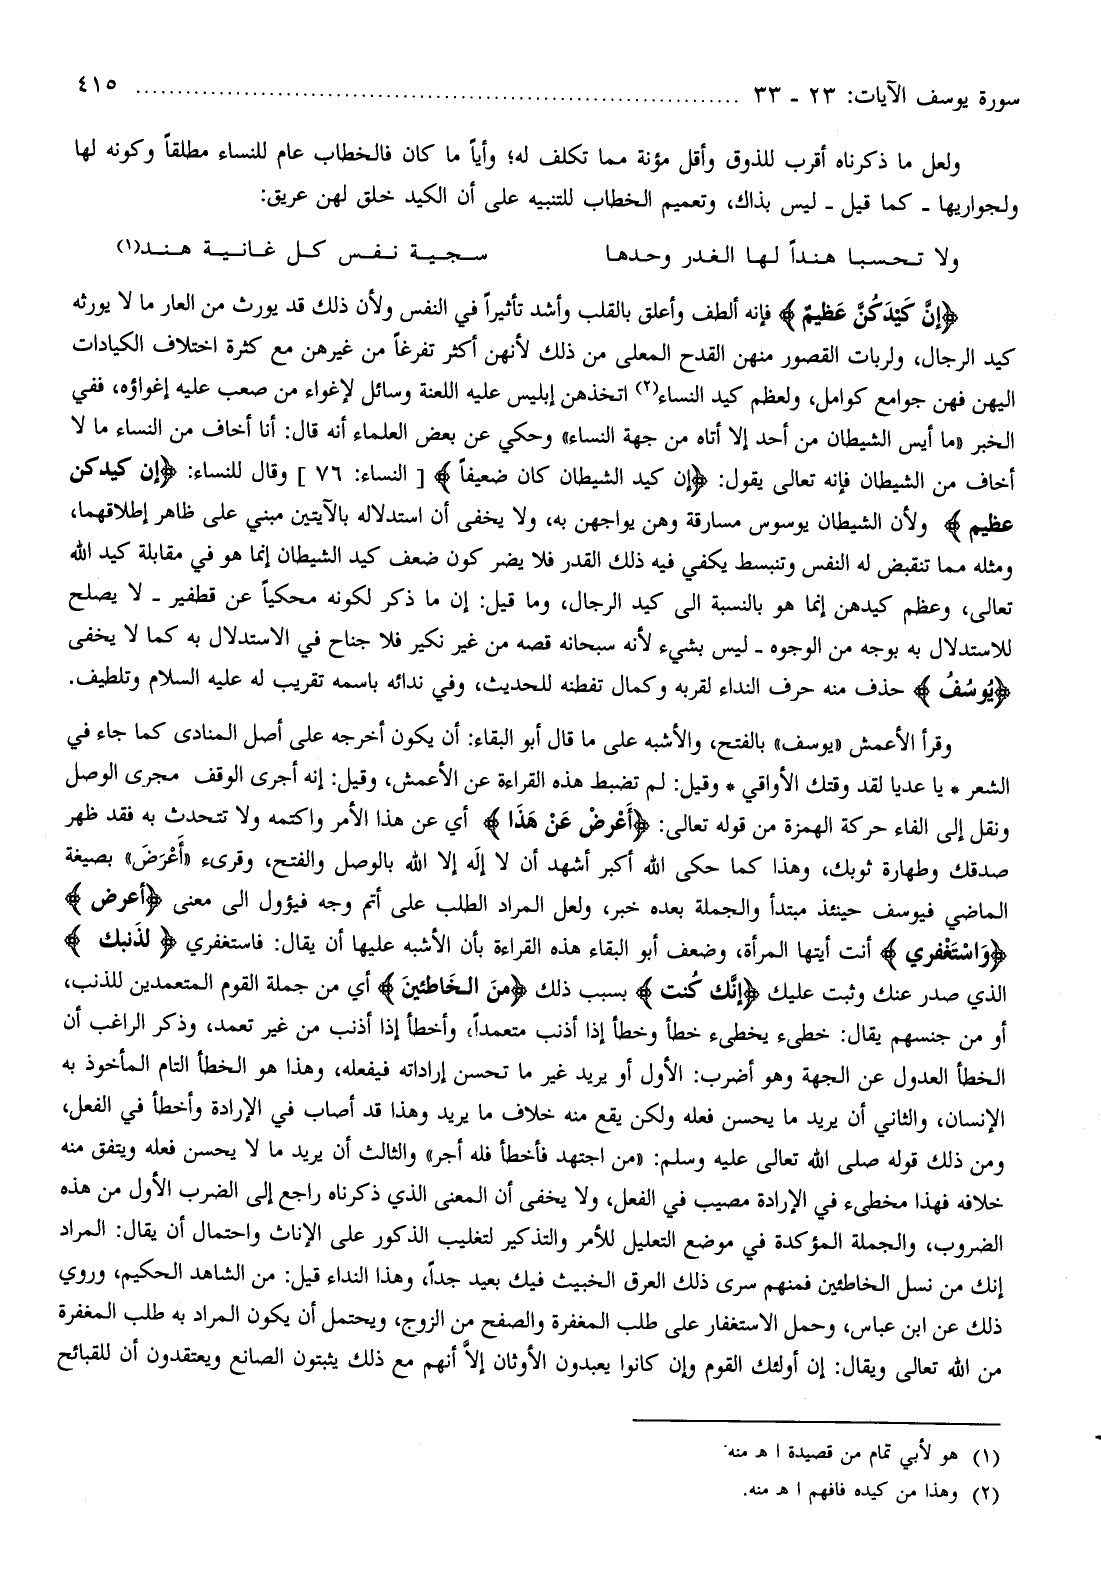 سورة يوسف الآيات: ٢٣ ـ ٣٣ ........................................................................ ٤١٥
ولعل ما ذكرناه أقرب للذوق وأقل مؤنة مما تكلف له؛ وأياً ما كان فالخطاب عام للنساء مطلقاً وكونه لها
ولجواريها ـ كما قيل ـ ليس بذاك، وتعميم الخطاب للتنبيه على أن الكيد خلق لهن عريق:
ولا تحسبا هنداً لها الغدر وحدها سجية نفس كل غانية هند(١)
﴿إنَّ كَيْدَكُنَّ عَظِيمٌ﴾ فإنه ألطف وأعلق بالقلب وأشد تأثيراً في النفس ولأن ذلك قد يورث من العار ما لا يورثه
كيد الرجال، ولربات القصور منهن القدح المعلى من ذلك لأنهن أكثر تفرغاً من غيرهن مع كثرة اختلاف الكيادات
اليهن فهن جوامع كوامل، ولعظم كيد النساء(٢) اتخذهن إبليس عليه اللعنة وسائل لإغواء من صعب عليه إغواؤه، ففي
الخبر «ما أيس الشيطان من أحد إلا أتاه من جهة النساء» وحكي عن بعض العلماء أنه قال: أنا أخاف من النساء ما لا
أخاف من الشيطان فإنه تعالى يقول: ﴿إن كيد الشيطان كان ضعيفاً﴾ [ النساء: ٧٦ ] وقال للنساء: ﴿إن كيدكن
عظيم﴾ ولأن الشيطان يوسوس مسارقة وهن يواجهن به، ولا يخفى أن استدلاله بالآيتين مبني على ظاهر إطلاقهما،
ومثله مما تنقبض له النفس وتنبسط يكفي فيه ذلك القدر فلا يضر كون ضعف كيد الشيطان إنما هو في مقابلة كيد الله
تعالى، وعظم كيدهن إنما هو بالنسبة الى كيد الرجال، وما قيل: إن ما ذكر لكونه محكياً عن قطفير ـ لا يصلح
للاستدلال به بوجه من الوجوه ـ ليس بشيء لأنه سبحانه قصه من غير نكير فلا جناح في الاستدلال به كما لا يخفى
﴿يُوسُفُ﴾ حذف منه حرف النداء لقربه وكمال تفطنه للحديث، وفي ندائه باسمه تقريب له عليه السلام وتلطيف.
وقرأ الأعمش «يوسف» بالفتح، والأشبه على ما قال أبو البقاء: أن يكون أخرجه على أصل المنادى كما جاء في
الشعر * يا عديا لقد وقتك الأواقي * وقيل: لم تضبط هذه القراءة عن الأعمش، وقيل: إنه أجرى الوقف مجرى الوصل
ونقل إلى الفاء حركة الهمزة من قوله تعالى: ﴿أَعْرِضْ عَنْ هَذَا﴾ أي عن هذا الأمر واكتمه ولا تتحدث به فقد ظهر
صدقك وطهارة ثوبك، وهذا كما حكى الله أكبر أشهد أن لا إلَه إلا الله بالوصل والفتح، وقرىء «أَعْرَضَ» بصيغة
الماضي فيوسف حينئذ مبتدأ والجملة بعده خبر، ولعل المراد الطلب على أتم وجه فيؤول الى معنى ﴿أعرض﴾
﴿وَاسْتَغْفري﴾ أنت أيتها المرأة، وضعف أبو البقاء هذه القراءة بأن الأشبه عليها أن يقال: فاستغفري ﴿لذَنبك﴾
الذي صدر عنك وثبت عليك ﴿إنَّك كُنت﴾ بسبب ذلك ﴿منَ الخَاطئينَ﴾ أي من جملة القوم المتعمدين للذنب،
أو من جنسهم يقال: خطىء يخطىء خطأ وخطأ إذا أذنب متعمداً، وأخطأ إذا أذنب من غير تعمد، وذكر الراغب أن
الخطأ العدول عن الجهة وهو أضرب: الأول أو يريد غير ما تحسن إراداته فيفعله، وهذا هو الخطأ التام المأخوذ به
الإنسان، والثاني أن يريد ما يحسن فعله ولكن يقع منه خلاف ما يريد وهذا قد أصاب في الإرادة وأخطأ في الفعل،
ومن ذلك قوله صلى الله تعالى عليه وسلم: «من اجتهد فأخطأ فله أجر» والثالث أن يريد ما لا يحسن فعله ويتفق منه
خلافه فهذا مخطىء في الإرادة مصيب في الفعل، ولا يخفى أن المعنى الذي ذكرناه راجع إلى الضرب الأول من هذه
الضروب، والجملة المؤكدة في موضع التعليل للأمر والتذكير لتغليب الذكور على الإناث واحتمال أن يقال: المراد
إنك من نسل الخاطئين فمنهم سرى ذلك العرق الخبيث فيك بعيد جداً، وهذا النداء قيل: من الشاهد الحكيم، وروي
ذلك عن ابن عباس، وحمل الاستغفار على طلب المغفرة والصفح من الزوج، ويحتمل أن يكون المراد به طلب المغفرة
من الله تعالى ويقال: إن أولئك القوم وإن كانوا يعبدون الأوثان إلاَّ أنهم مع ذلك يثبتون الصانع ويعتقدون أن للقبائح
(١) هو لأبي تمام من قصيدة ا هـ منه.
(٢) وهذا من كيده فافهم ا هـ منه.